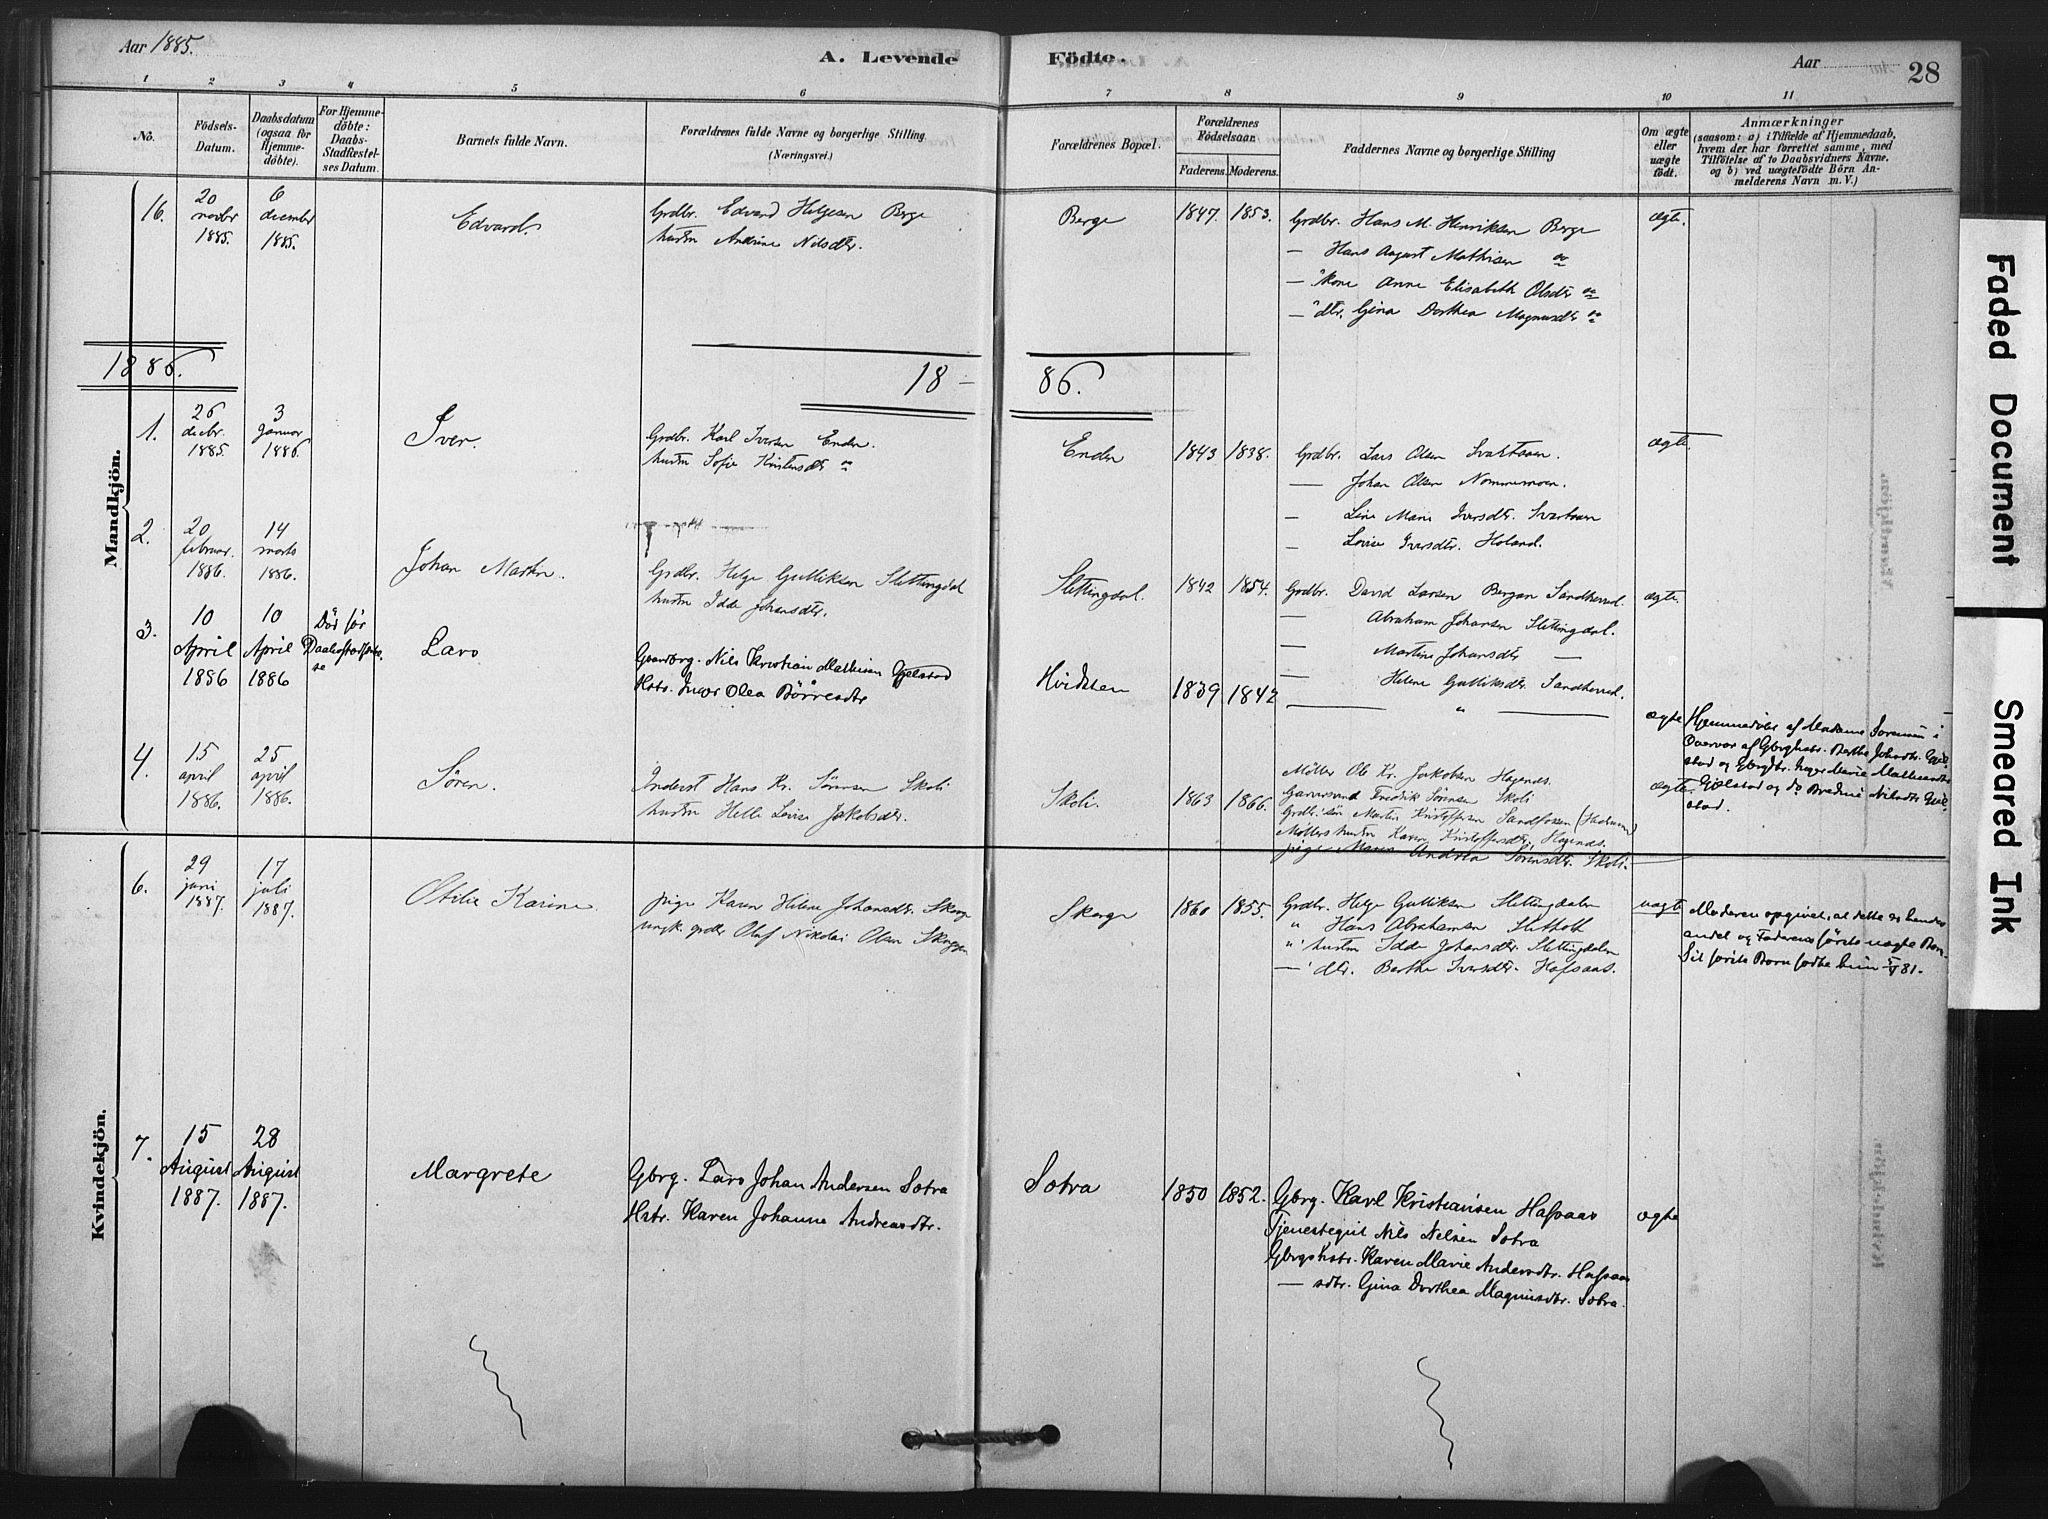 Aar 1885.
A. Levende Födte.
Aar
28
1 2 3 4 5 6 7 8 9 10 11
No.
Födsels-
Datum.
Daabsdatum
(ogsaa for
Hjemme-
döbte).
For Hjemme-
döbte:
Daabs-
Stadfæstel-
ses Datum.
Barnets fulde Navn.
Forældrenes fulde Navne og borgerlige Stilling.
(Næringsvei.)
Forældrenes Bopæl.
Forældrenes
Födselsaar.
Faderens.
Moderens.
Faddernes Navne og borgerlige Stilling
Om ægte
eller
uægte
födt.
Anmærkninger
(saasom: a) i Tilfælde af Hjemmedaab,
hvem der har forrettet samme, med
Tilföielse af to Daabsvidners Navne.
og b) ved uægtefödte Börn An-
melderens Navn m. V.)
Mandkjön.
16.
20
novbr
1885.
6
decembr
1885.
Edvard.
Grdbr. Edvard Helgesen Berge
hustru Andrine Nilsdtr.
Berge
1847. 1853.
Grdbr. Hans M. Henriksen Berge
— Hans August Mathisen do
— "kone Anne Elisabeth Olsdtr do
— "dtr. Gina Dorthea Magnusdtr do
ægte.
1886.
18 — 86.
1.
26
decbr.
1885
3
Januar
1886
Iver.
Grdbr. Karl Iversen Enden.
hustru Sofie Kristensdtr do
Enden
1843 1838.
Grdbr. Lars Olsen Svartaaen.
— Johan Olsen Nommemoen.
— Line Marie Iversdtr. Svartaaen
— Lovise Iversdtr. Holand.
ægte.
2.
20
februar.
1886.
14
marts
1886.
Johan Martin.
Grdbr. Helge Gulliksen Slettingdal
hustru Idde Johansdtr.
Slettingdal.
1842 1854.
Grdbr. David Larsen Bergan Sandherred.
— Abraham Johansen Slettingdal.
— Martine Johansdtr —
— Helene Gulliksdtr. Sandherred.
ægte.
3.
10
April
1886
10
April
1886
Död för
Lars
Nils Kristian Mathisen Gjelstad
Hstr. Inger Olea Börresdtr
Hvidsten
1839 1842
— " —
ægte
Hjemmedöbt af Madame Sorensen i
Overvær af Gbrghstr. Berthe Johsdtr. Gjel-
stad og Gbrgdtr. Inger Marie Mathisendtr
Gjelstad og do Bredine Nilsdtr Gjel-
stad.
4.
15
april
1886.
25
april
1886.
Sören.
Inderst Hans Kr. Sörensen Skoli
hustru Helle Lovise Jakobsdtr.
Skoli.
1863 1866.
Möller Ole Kr. Jakobsen Hagenæs.
Garversvend Fredrik Sörensen Skoli
Grdbr. sön Martin Kristoffersen Sandfossen (Hedrum)
Möllers hustru Karen Kristoffersdtr. Hagenæs.
pige Maren Andrea Sörensdtr. Skoli.
ægte.
Kvindekjön.
6.
29
juni
1887.
17
juli
1887.
Otilie Karine
pige Karen Helene Johansdtr. Skorge
ungk. grdbr Oluf Nikolai Olsen Skoggen
Skorge
1860 1855.
Grdbr. Helge Gulliksen Slettingdalen
" Hans Abrahamsen Slettholt
" hustru Idde Johansdtr. Slettingdalen
— ' dtr. Berthe Iversdtr. Hafsaas.
uægte
Moderen opgivet, at dette er hendes
andet og Faderens förste uægte Barn.
Sit förste Barn födte hun 5/5 81.
7.
15
August
1887.
28
August
1887.
Margrete
Gbrg. Lars Johan Andersen Sotra
Hstr. Karen Johanne Andreasdtr.
Sotra
1850 1852.
Gbrg. Karl Kristiansen Hafsaas
Tjenestegut Nils Nilsen Sotra
Gbrgshstr. Karen Marie Andersdtr. Hafsaas
— sdtr. Gina Dorthea Magnusdtr. Sotra.
ægte
Faded Document
Smeared Ink